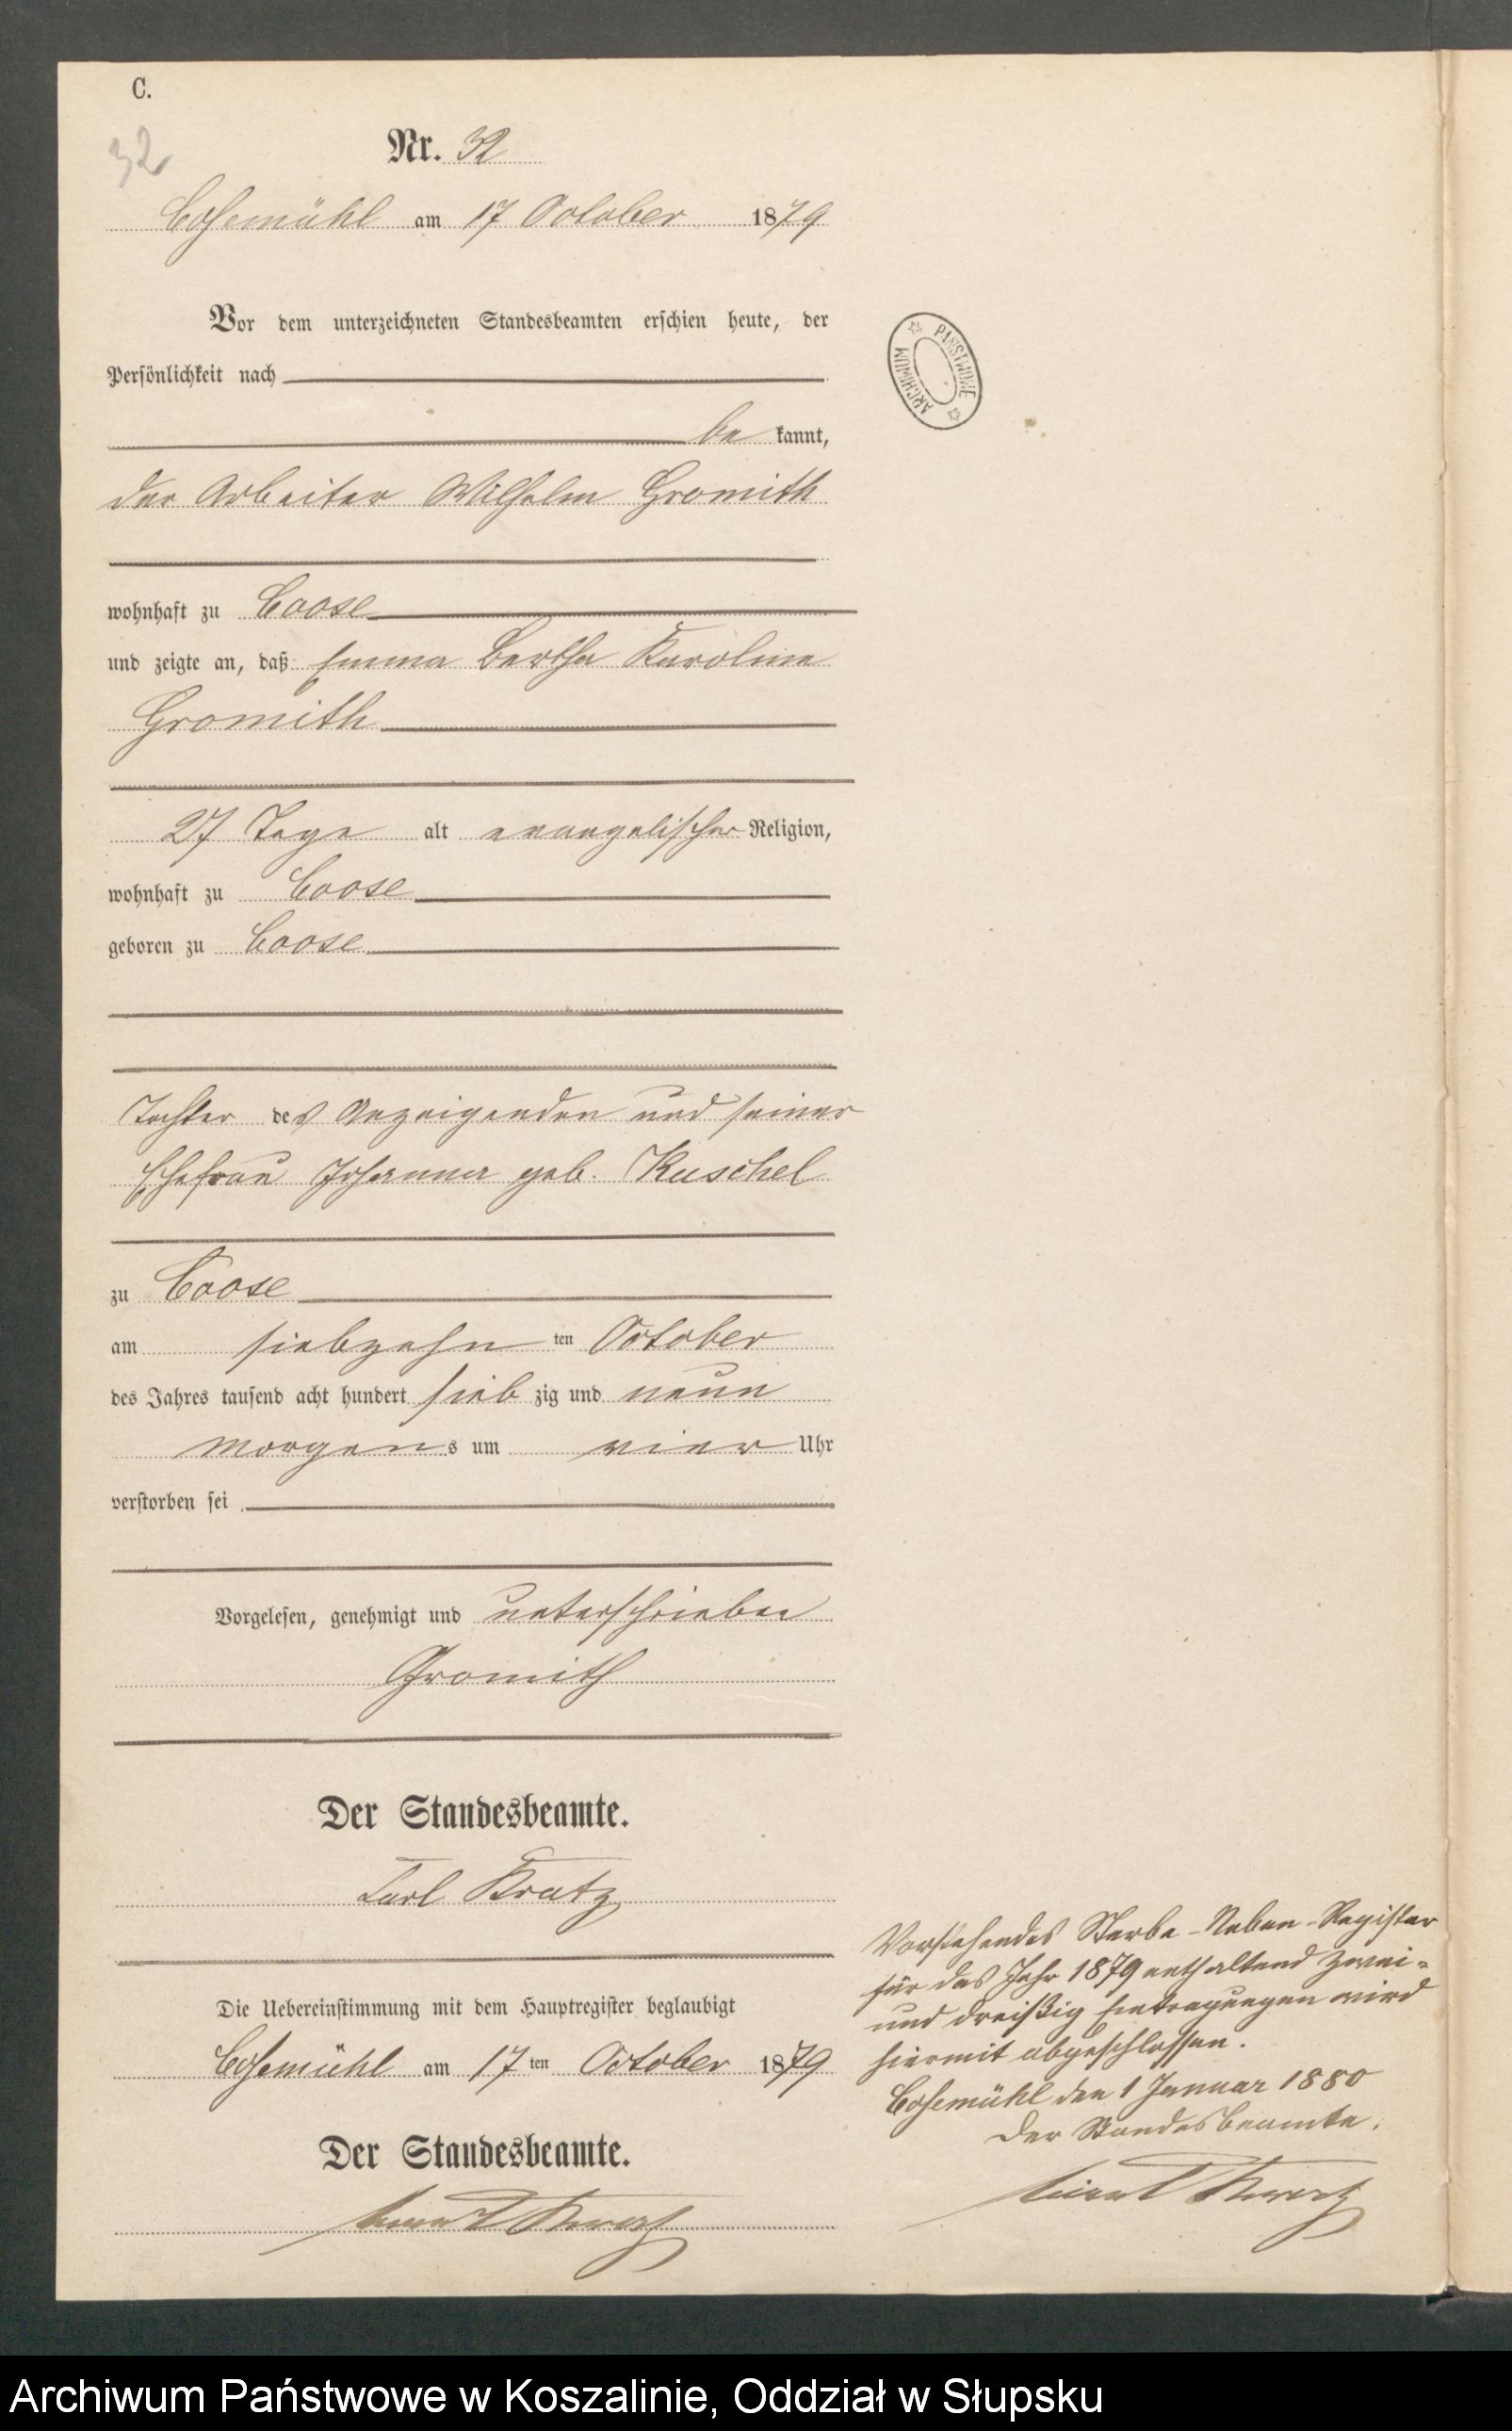 C.
32
Nr. 32
Cosemühl am 17 October 1879
Vor dem unterzeichneten Standesbeamten erschien heute, der
Persönlichkeit nach
be kannt,
der Arbeiter Wilhelm Gromith
wohnhaft zu Coose
und zeigte an, daß Emma Bertha Karoline
Gromith
27 Tage alt evangelischer Religion,
wohnhaft zu Coose
geboren zu Coose
Tochter des Anzeigenden und seiner
Ehefrau Johanna geb. Kuschel
zu Coose
am siebzehn ten October
des Jahres tausend acht hundert sieb zig und neun
Morgens um vier Uhr
verstorben sei
Vorgelesen, genehmigt und unterschrieben
Gromith
Der Standesbeamte.
Carl Kratz
Die Uebereinstimmung mit dem Hauptregister beglaubigt
Cosemühl am 17 ten October 1879
Der Standesbeamte.
ARCHIWUM PAŃSTWOWE
Vorstehendes Sterbe-Neben-Register
für das Jahr 1879 enthaltend zwei-
und dreißig Eintragungen wird
hiermit abgeschlossen.
Cosemühl den 1 Januar 1880
Der Standesbeamte.
Archiwum Państwowe w Koszalinie, Oddział w Słupsku